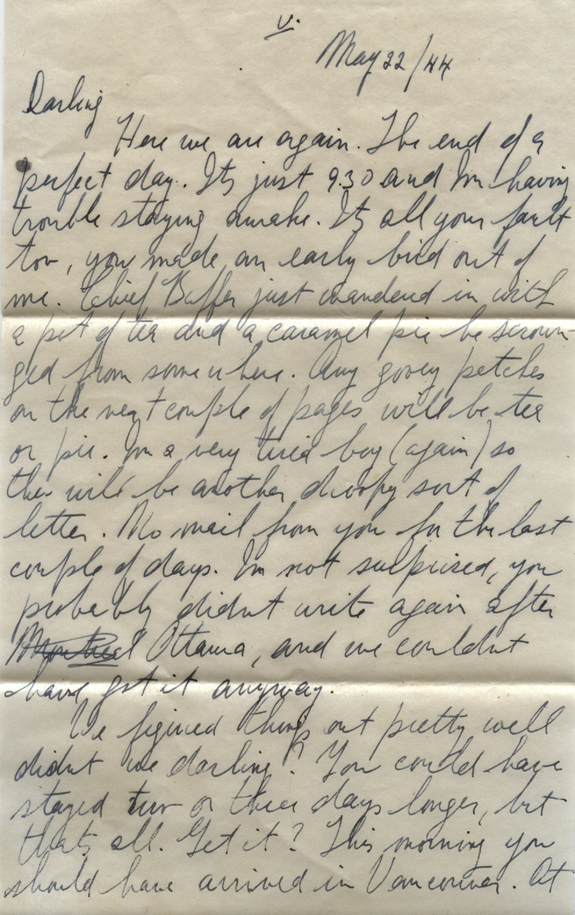 V.
May 22/44
Darling
Here we are again. The end of a
perfect day. Its just 9.30 and Im having
trouble staying awake. Its all your fault
too, you made an early bird out of
me. Chief Buffer just wandered in with
a pot of tea and a caramel pie he scroun-
ged from somewhere. Any gooey patches
on the next couple of pages will be tea
or pie. Im a very tired boy (again) so
this will be another droopy sort of
letter. No mail from you for the last
couple of days. Im not surprised, you
probably didnt write again after
Montreal Ottawa, and we couldnt
have got it anyway.
We figured things out pretty well
didnt we darling? You could have
stayed two or three days longer, but
thats all. Get it? This morning you
should have arrived in Vancouver. At